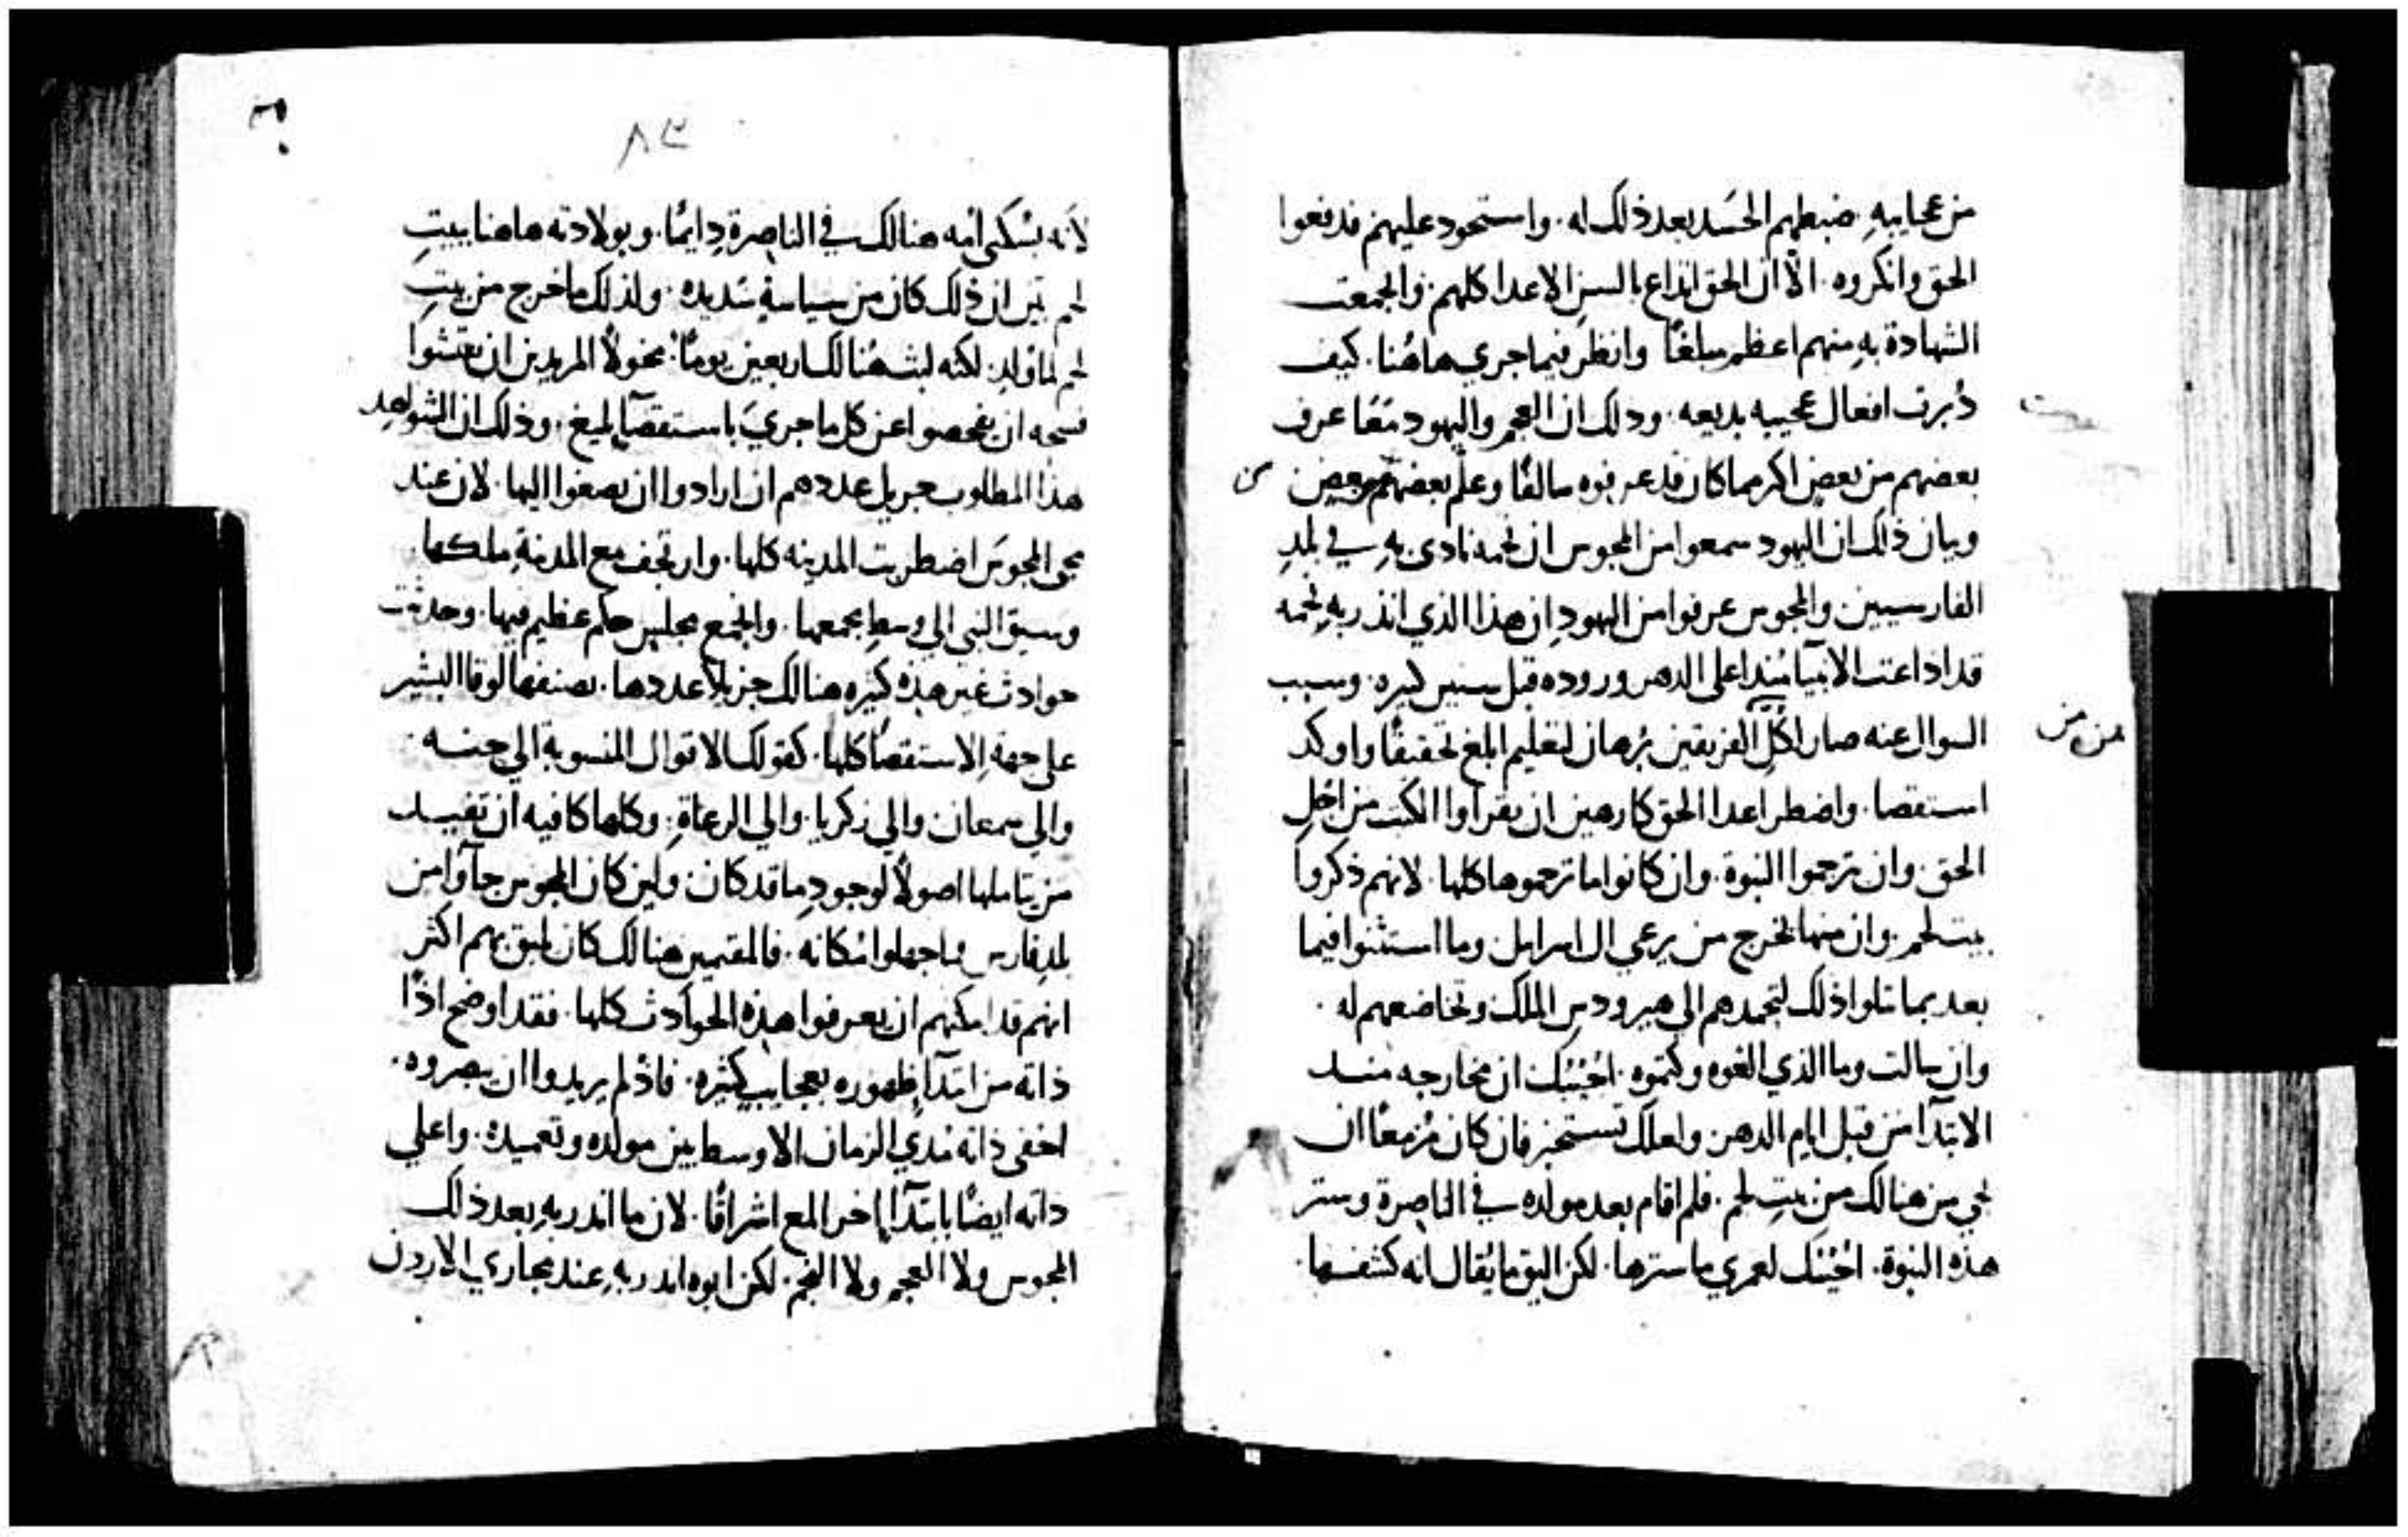 من عجايبه. ضبطهم الحسَد بعد ذلك له. واستحود عليهم فدفعوا
الحق وانكروه. الا ان الحق انذاع بالسن الاعدا كلهم. واجمعت
الشهادة به منهم اعظم مبلغًا وانظر فيما جري هاهُنا. كيف
دُبرت افعال عجيبه بديعه. وذلك ان العجم واليهود معًا عرف
بعضهم من بعض اكثر مما كان قد عرفوه سالفًا وعلم بعضهم من بعض
وبيان ذلك ان اليهود سمعوا من المجوس ان نجمه نادى به في بلد
الفارسيين والمجوس عرفوا من اليهود ان هذا الذي انذر به نجمه
قد اذاعت الانبيا مُنذ اعلى الدهر وروده قبل سنين كثيره. وسبب
السوال عنه صار لكل الفريقين برُهان لتعليم ابلغ تحقيقًا واوكد
استقصا. واضطر اعدا الحق كارهين ان يقراوا الكتب من اجْل
الحق. وان ترجموا النبوة. وان كانوا ما ترجموها كلها. لانهم ذكروا
بيت لحم. وان منها يخرج من يرعي ال اسراييل. وما استثنوا فيما
بعد بما تلوا ذلك لتجمدهم الى هيرودس الملك وتخاضعهم له.
وان سالت وما الذي الغوه وكتموه. اجُبتك ان مخارجه منـد
الابتدآ من قبل ايام الدهر. ولعلك تستخبر فان كان مُزمعًا ان
يجي من هنالك من بيت لحم. فلم اقام بعد مولده في الناصرة وستر
هذه النبوة. اجُبتك لعمري ما سترها. لكن اليق ما يُقال انه كشفـها.
من من
٣٠
٨٣
لانه بسُكنى امه هنالك في الناصرة دايمًا. وبولادته هاهنا ببيت
لحم تبين ان ذلك كان من سياسةٍ شديده. ولذلك ما خرج من بيت
لحم لما وُلد. لكنه لبث هُنالك اربعين يومًا. مخولاً المريدين ان يفتشوا
فسحه ان يفحصوا عن كل ما جريَ باستقصآ بليغ. وذلك ان الشواهد
هذا المطلوب جزيل عددهم ان ارادوا ان يصغوا اليها. لان عند
مجي المجوسَ اضطربت المدينه كلها. وارتجف مع المدينةِ ملكها.
وسيق النبي الى وسط مجمعها. واجتمع مجلس حكم عظيم فيها. وحدثت
حوادث غير هذه كثيره هنالك جزيلاً عددها. يصنفها لوقا البشير
على جهة الاستقصا كلها. كقولك الاقوال المنسوبة الي حنـه
والي سمعان والي زكريا. والي الرعاة. وكلها كافيه ان تفيـد
من يتاملها اصولاً لوجود ما قد كان. ولين كان المجوس جآوا من
بلد فارس وما جهلوا مكانه. فالمقيمين هنالك كان يليق بهم اكثر
انهم قد امكنهم ان يعرفوا هذه الحوادث كلها. فقد اوضح اذًا
ذاته من ابتدآ ظهوره بعجايب كثيره. فاذ لم يريدوا ان يبصروه.
اخفى ذاته مُدي الزمان الاوسط بين مولده وتعميده. واعلي
ذاته ايضًا بابتدآ اخر المع اشراقًا. لان ما انذر به بعد ذلك
المجوس ولا العجم ولا النجم. لكن ابوه انذر به عند مجاري الاردن